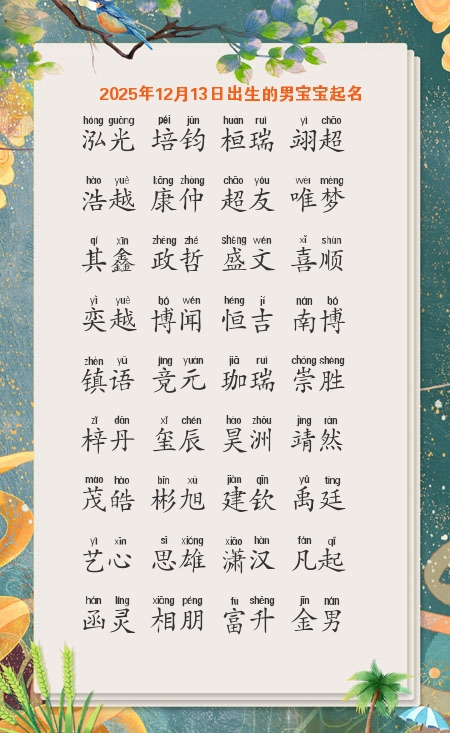 2025年12月13日出生的男宝宝起名
hóng guāng péi jūn huán ruì yì chāo
泓光 培钧 桓瑞 翊超
hào yuè kāng zhòng chāo yǒu wéi mèng
浩越 康仲 超友 唯梦
qí xīn zhèng zhé shèng wén xǐ shùn
其鑫 政哲 盛文 喜顺
yì yuè bó wén héng jí nán bó
奕越 博闻 恒吉 南博
zhèn yǔ jìng yuán jiā ruì chóng shèng
镇语 竞元 珈瑞 崇胜
zǐ dān xǐ chén hào zhōu jìng rán
梓丹 玺辰 昊洲 靖然
mào hào bīn xù jiàn qīn yǔ tíng
茂皓 彬旭 建钦 禹廷
yì xīn sī xióng xiāo hàn fán qǐ
艺心 思雄 潇汉 凡起
hán líng xiāng péng fù shēng jīn nán
函灵 相朋 富升 金男